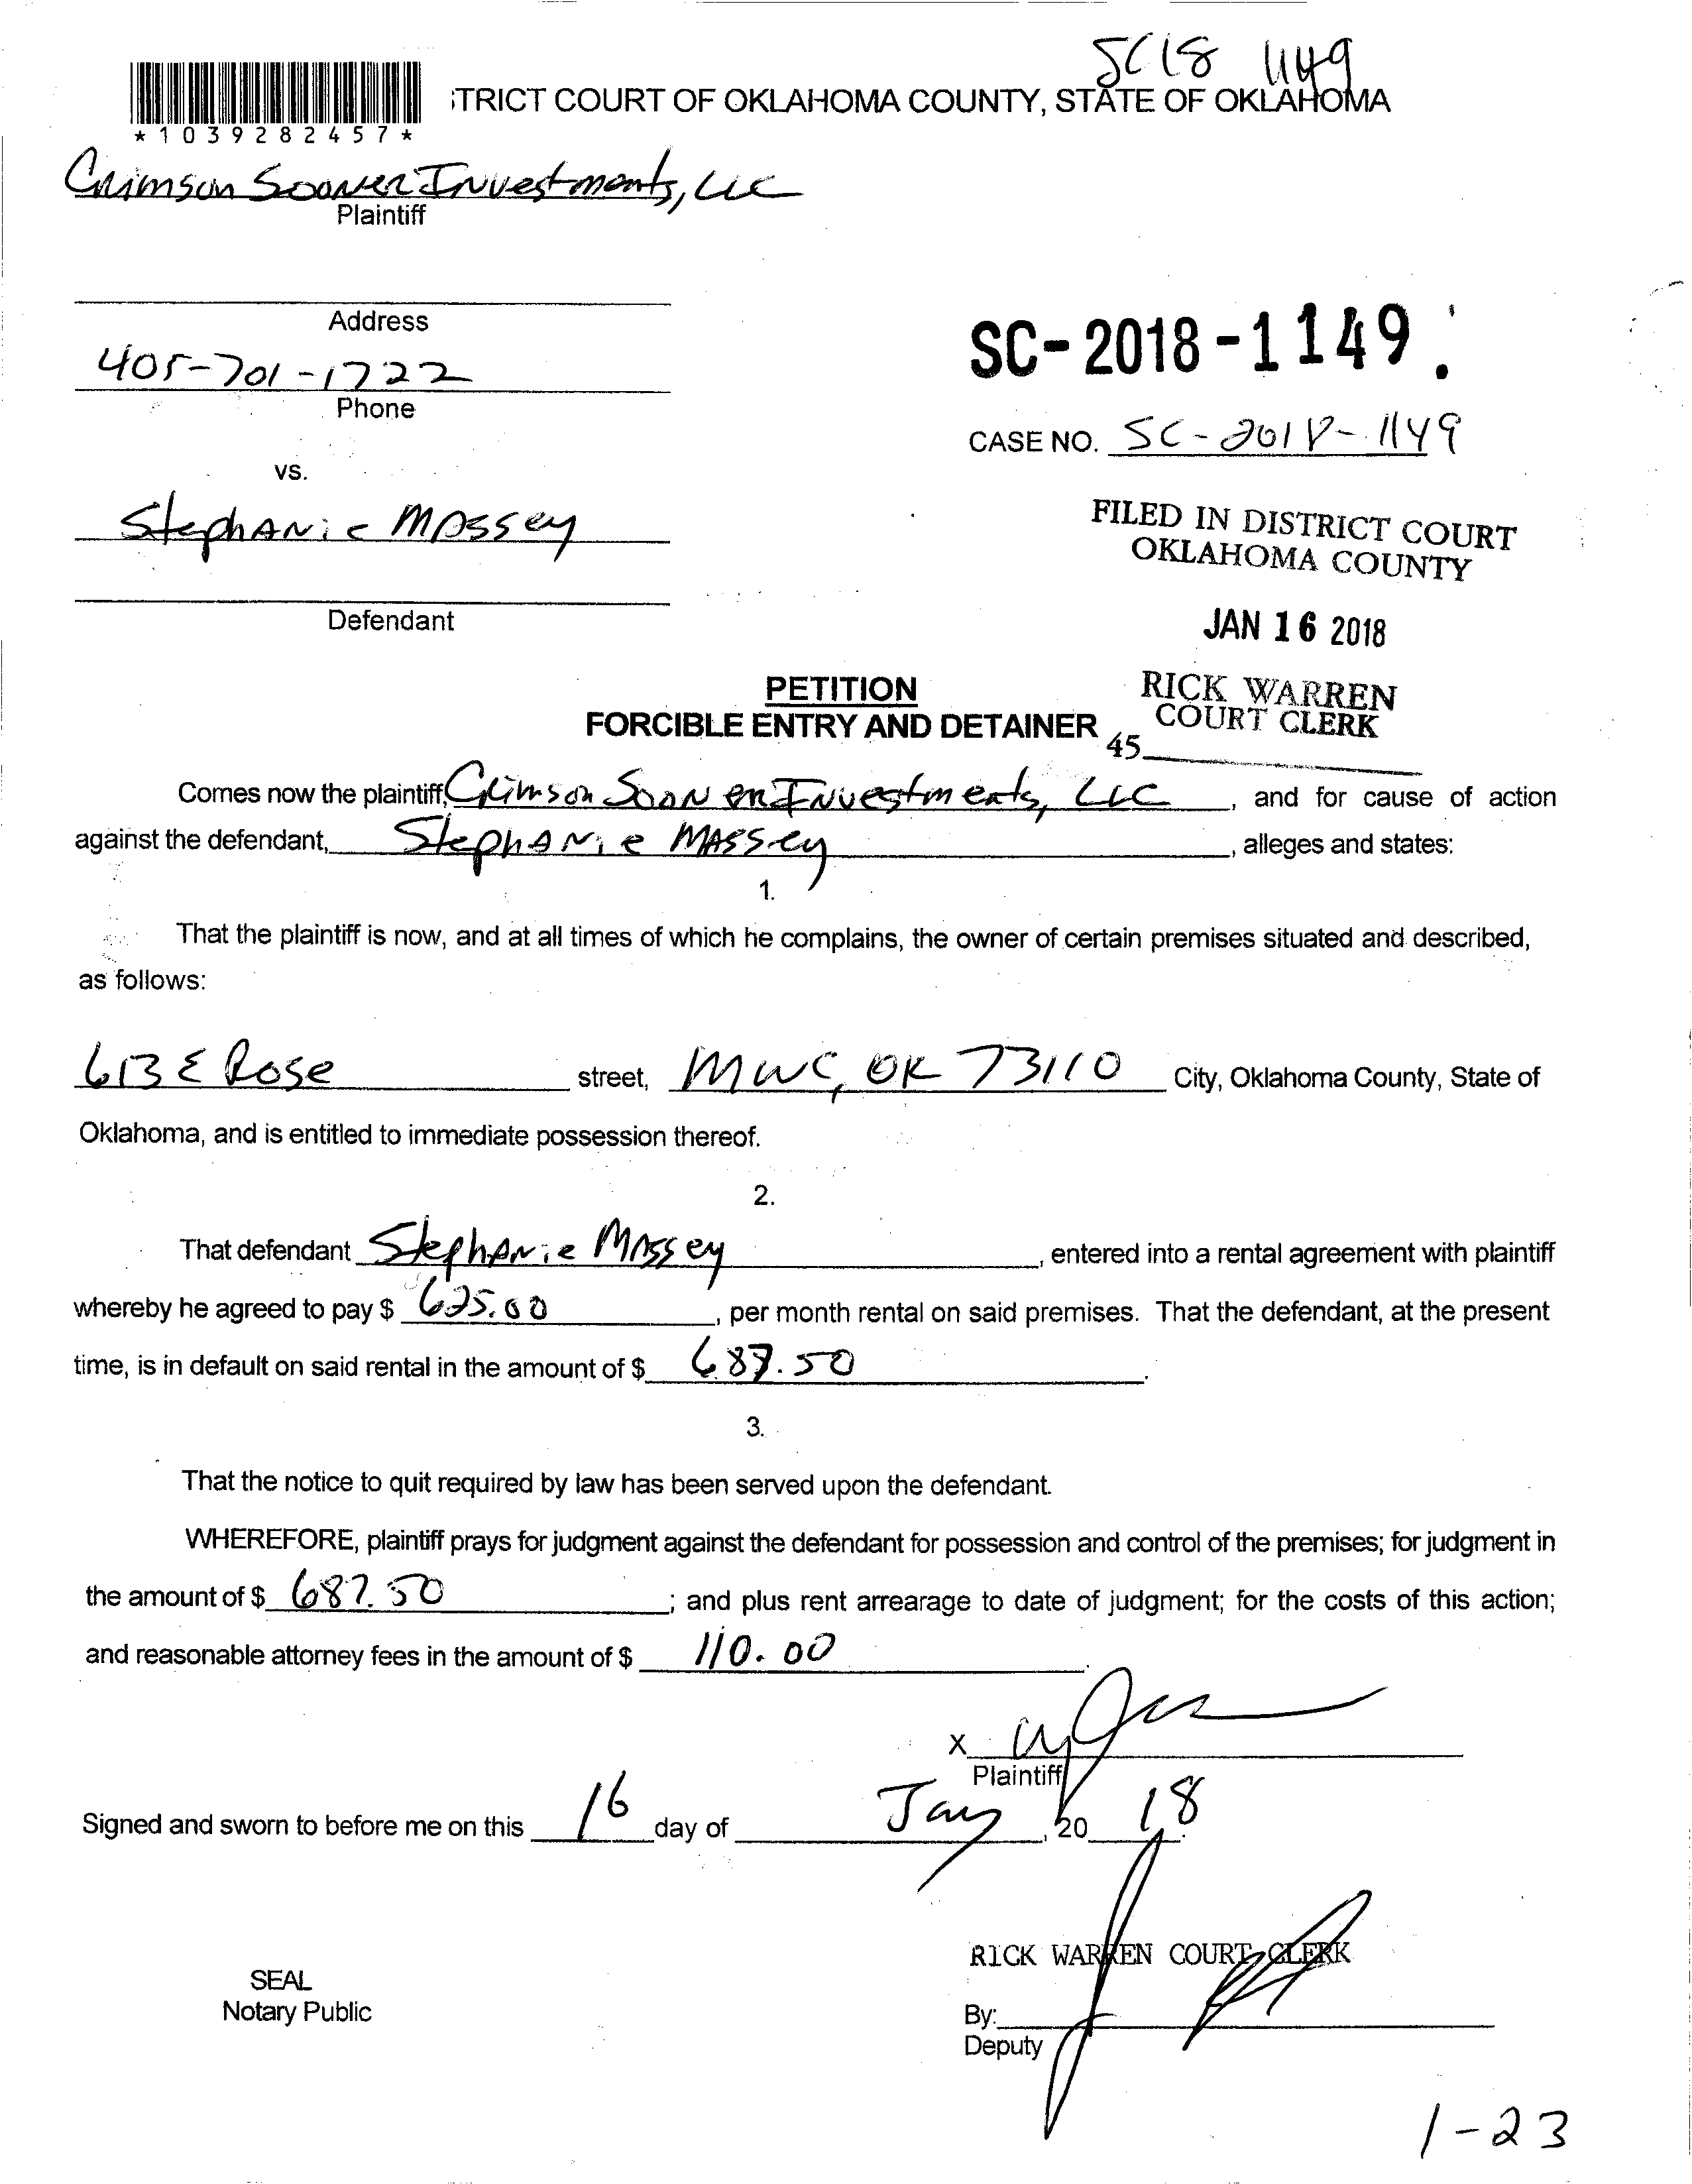 SC18 1149
TRICT COURT OF OKLAHOMA COUNTY, STATE OF OKLAHOMA
*1039282457*
Crimson Sooner Investments, LLC
Plaintiff
Address
405-701-1722
Phone
SC-2018-1149
CASE NO. SC-2018-1149
vs.
Stephanie Massey
Defendant
FILED IN DISTRICT COURT
OKLAHOMA COUNTY
JAN 16 2018
RICK WARREN
COURT CLERK
45
PETITION
FORCIBLE ENTRY AND DETAINER
Comes now the plaintiff, Crimson Sooner Investments, LLC, and for cause of action
against the defendant, Stephanie Massey, alleges and states:
1.
That the plaintiff is now, and at all times of which he complains, the owner of certain premises situated and described,
as follows:
613 E Rose street, MWC, OK 73110 City, Oklahoma County, State of
Oklahoma, and is entitled to immediate possession thereof.
2.
That defendant Stephanie Massey, entered into a rental agreement with plaintiff
whereby he agreed to pay $ 625.00, per month rental on said premises. That the defendant, at the present
time, is in default on said rental in the amount of $ 687.50.
3.
That the notice to quit required by law has been served upon the defendant.
WHEREFORE, plaintiff prays for judgment against the defendant for possession and control of the premises; for judgment in
the amount of $ 687.50; and plus rent arrearage to date of judgment; for the costs of this action;
and reasonable attorney fees in the amount of $ 110.00.
X
Plaintiff
Signed and sworn to before me on this 16 day of Jan, 20 18.
RICK WARREN COURT CLERK
SEAL
Notary Public
By:
Deputy
1-23